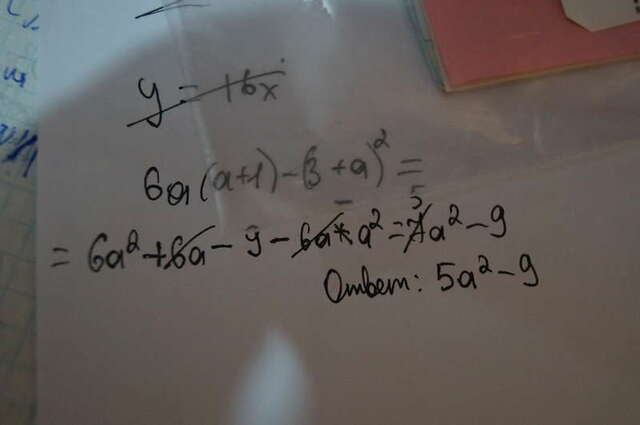 y = 16x
6a(a+1)-(3+a)²=
= 6a²+6a-9-6a-a²=5a²-9
Ответ: 5a²-9